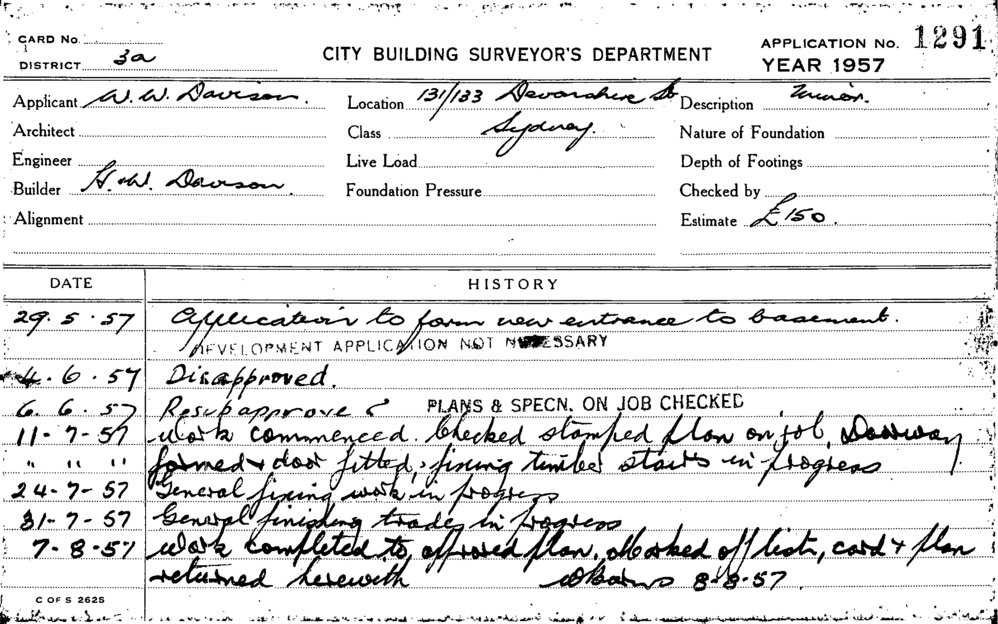 CARD No.
DISTRICT 3a
CITY BUILDING SURVEYOR'S DEPARTMENT
APPLICATION No. 1291
YEAR 1957
Applicant W. W. Davison.
Location 131/133 Devonshire St
Sydney.
Description Minor.
Architect
Class
Nature of Foundation
Engineer
Live Load
Depth of Footings
Builder H. W. Davison.
Foundation Pressure
Checked by
Alignment
Estimate £150.
DATE
HISTORY
29.5.57 Application to form new entrance to basement.
DEVELOPMENT APPLICATION NOT NECESSARY
4.6.57 Disapproved.
6.6.57
PLANS & SPECN. ON JOB CHECKED
11-7-57 Work commenced. Checked stamped plan on job, Doorway
" " " formed & door fitted, fixing timber stairs in progress
24-7-57 General fixing work in progress
31-7-57 General finishing trades in progress
7-8-57 Work completed to approved plan. Marked off list, card & plan
returned herewith 8-8-57.
C OF S 2625